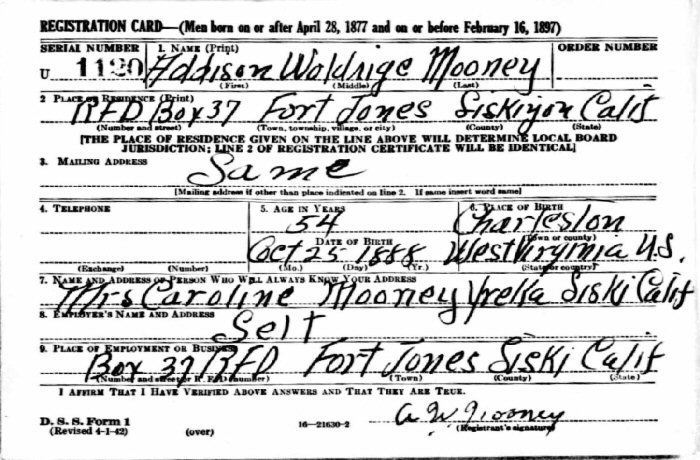 REGISTRATION CARD—(Men born on or after April 28, 1877 and on or before February 16, 1897)
SERIAL NUMBER 1. NAME (Print) ORDER NUMBER
U 1120 Addison Woldrige Mooney
(First) (Middle) (Last)
2 PLACE OF RESIDENCE (Print)
RFD Box 37 Fort Jones Siskiyou Calif
(Number and street) (Town, township, village, or city) (County) (State)
[THE PLACE OF RESIDENCE GIVEN ON THE LINE ABOVE WILL DETERMINE LOCAL BOARD
JURISDICTION; LINE 2 OF REGISTRATION CERTIFICATE WILL BE IDENTICAL]
3. MAILING ADDRESS
Same
[Mailing address if other than place indicated on line 2. If same insert word same]
4. TELEPHONE 5. AGE IN YEARS 6. PLACE OF BIRTH
54 Charleston
DATE OF BIRTH (Town or county)
Oct 25 1888 West Virginia U.S.
(Exchange) (Number) (Mo.) (Day) (Yr.) (State or country)
7. NAME AND ADDRESS OF PERSON WHO WILL ALWAYS KNOW YOUR ADDRESS
Mrs Caroline Mooney Yreka Siski Calif
8. EMPLOYER'S NAME AND ADDRESS
Self
9. PLACE OF EMPLOYMENT OR BUSINESS
Box 37 RFD Fort Jones Siski Calif
(Number and street or R. F. D. number) (Town) (County) (State)
I AFFIRM THAT I HAVE VERIFIED ABOVE ANSWERS AND THAT THEY ARE TRUE.
A. W. Mooney
D. S. S. Form 1
(Revised 4-1-42) (over) 16—21630-2 (Registrant's signature)